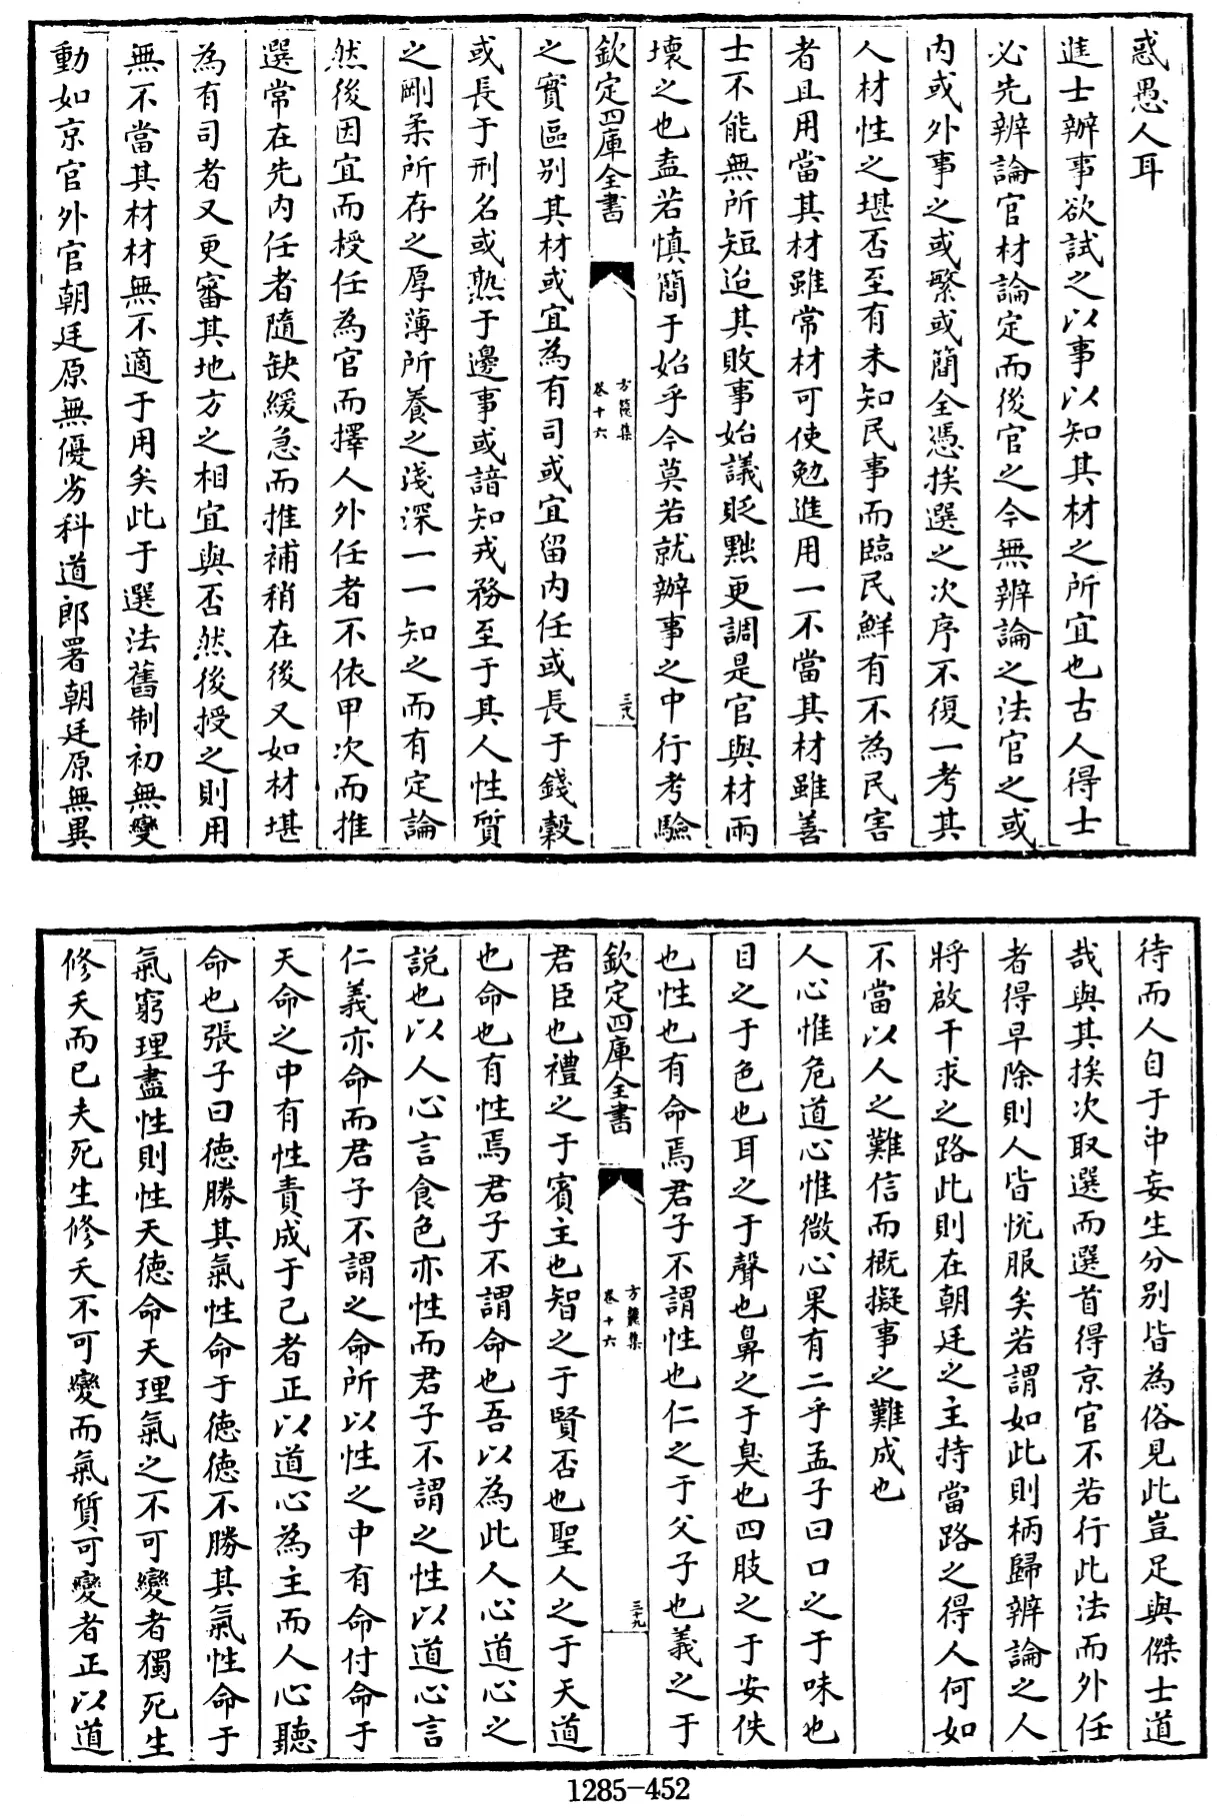 惑愚人耳
進士辦事欲試之以事以知其材之所宜也古人得士
必先辨論官材論定而後官之今無辨論之法官之或
内或外事之或繁或簡全憑挨選之次序不復一考其
人材性之堪否至有未知民事而臨民鮮有不為民害
者且用當其材雖常材可使勉進用一不當其材雖善
士不能無所短迨其敗事始議貶黜更調是官與材兩
壞之也盍若慎簡于始乎今莫若就辦事之中行考驗
欽定四庫全書
方麓集
卷十六
三十八
之實區别其材或宜為有司或宜留内任或長于錢穀
或長于刑名或熟于邊事或諳知戎務至于其人性質
之剛柔所存之厚薄所養之淺深一一知之而有定論
然後因宜而授任為官而擇人外任者不依甲次而推
選常在先内任者隨缺緩急而推補稍在後又如材堪
為有司者又更審其地方之相宜與否然後授之則用
無不當其材材無不適于用矣此于選法舊制初無變
動如京官外官朝廷原無優劣科道郎署朝廷原無異
待而人自于中妄生分别皆為俗見此豈足與傑士道
哉與其挨次取選而選首得京官不若行此法而外任
者得早除則人皆悅服矣若謂如此則柄歸辨論之人
將啟干求之路此則在朝廷之主持當路之得人何如
不當以人之難信而概擬事之難成也
人心惟危道心惟微心果有二乎孟子曰口之于味也
目之于色也耳之于聲也鼻之于臭也四肢之于安佚
也性也有命焉君子不謂性也仁之于父子也義之于
欽定四庫全書
方麓集
卷十六
三十九
君臣也禮之于賓主也智之于賢否也聖人之于天道
也命也有性焉君子不謂命也吾以為此人心道心之
説也以人心言食色亦性而君子不謂之性以道心言
仁義亦命而君子不謂之命所以性之中有命付命于
天命之中有性責成于己者正以道心為主而人心聽
命也張子曰德勝其氣性命于德德不勝其氣性命于
氣窮理盡性則性天德命天理氣之不可變者獨死生
修夭而已夫死生修夭不可變而氣質可變者正以道
1285-452